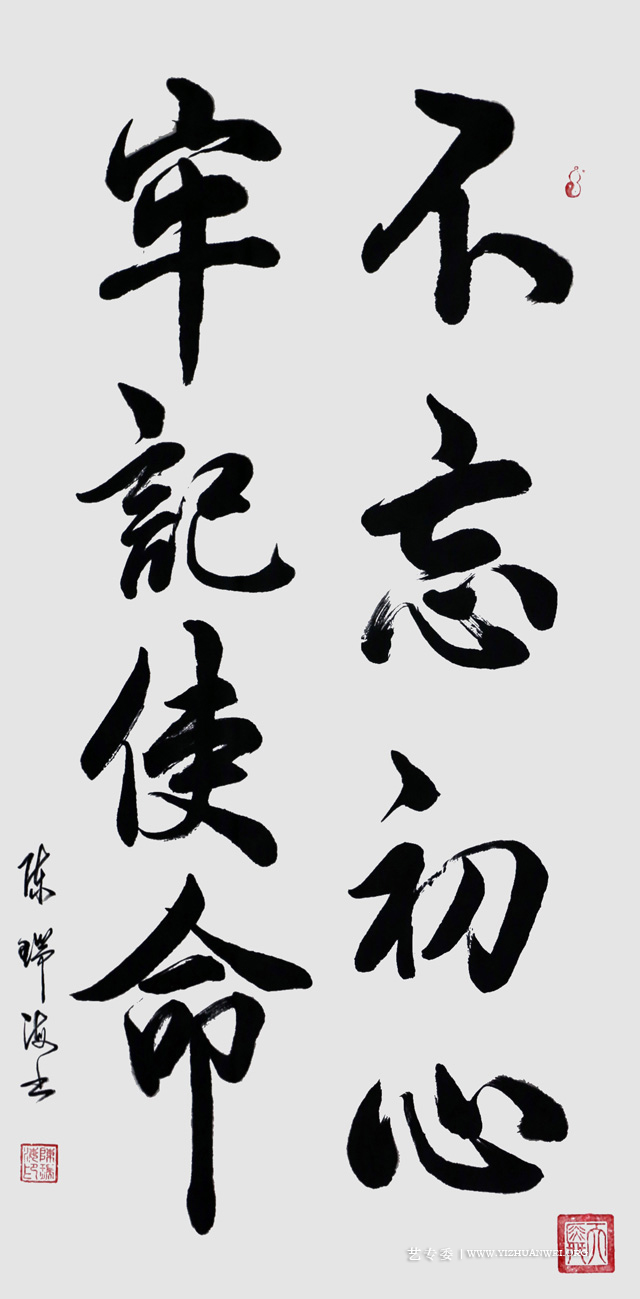 不忘初心
牢記使命
陈瑞海书
艺专委 | WWW.YIZHUANWEI.ORG